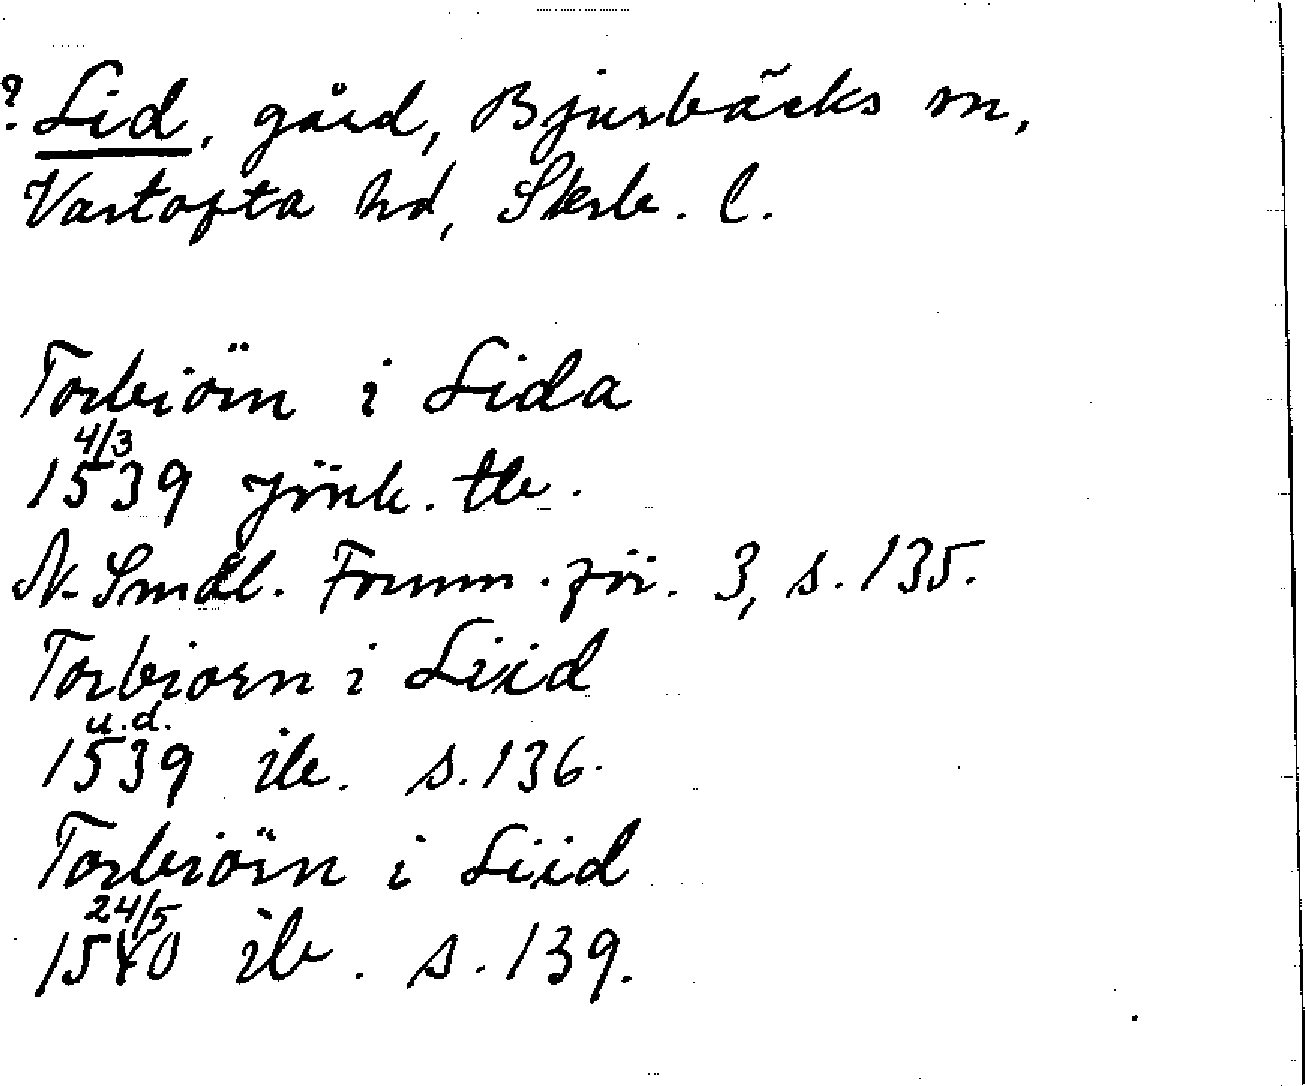 ? Lid, gård, Bjurbäcks sn,
Vartofta hd, Skrb. l.
Torbiörn i Lida
4/3
1539 Jönk. tb.
N. Smål. Fornm. för. 3, s. 135.
Torbiorn i Liid
u.d.
1539 ib. s. 136.
Torbiörn i Liid
24/5
1540 ib. s. 139.